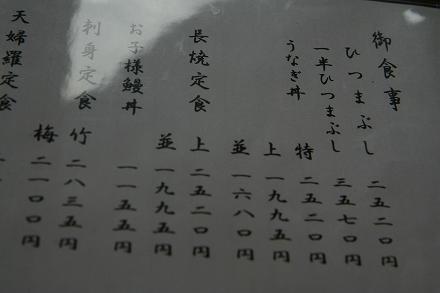 御食事
ひつまぶし 二五二〇円
一半ひつまぶし 三五七〇円
うなぎ丼 特 二五二〇円
上 一九九五円
並 一六八〇円
長焼定食 上 二五二〇円
並 一九九五円
お子様鰻丼 一一五五円
刺身定食 竹 二八三五円
梅 二一〇〇円
天婦羅定食